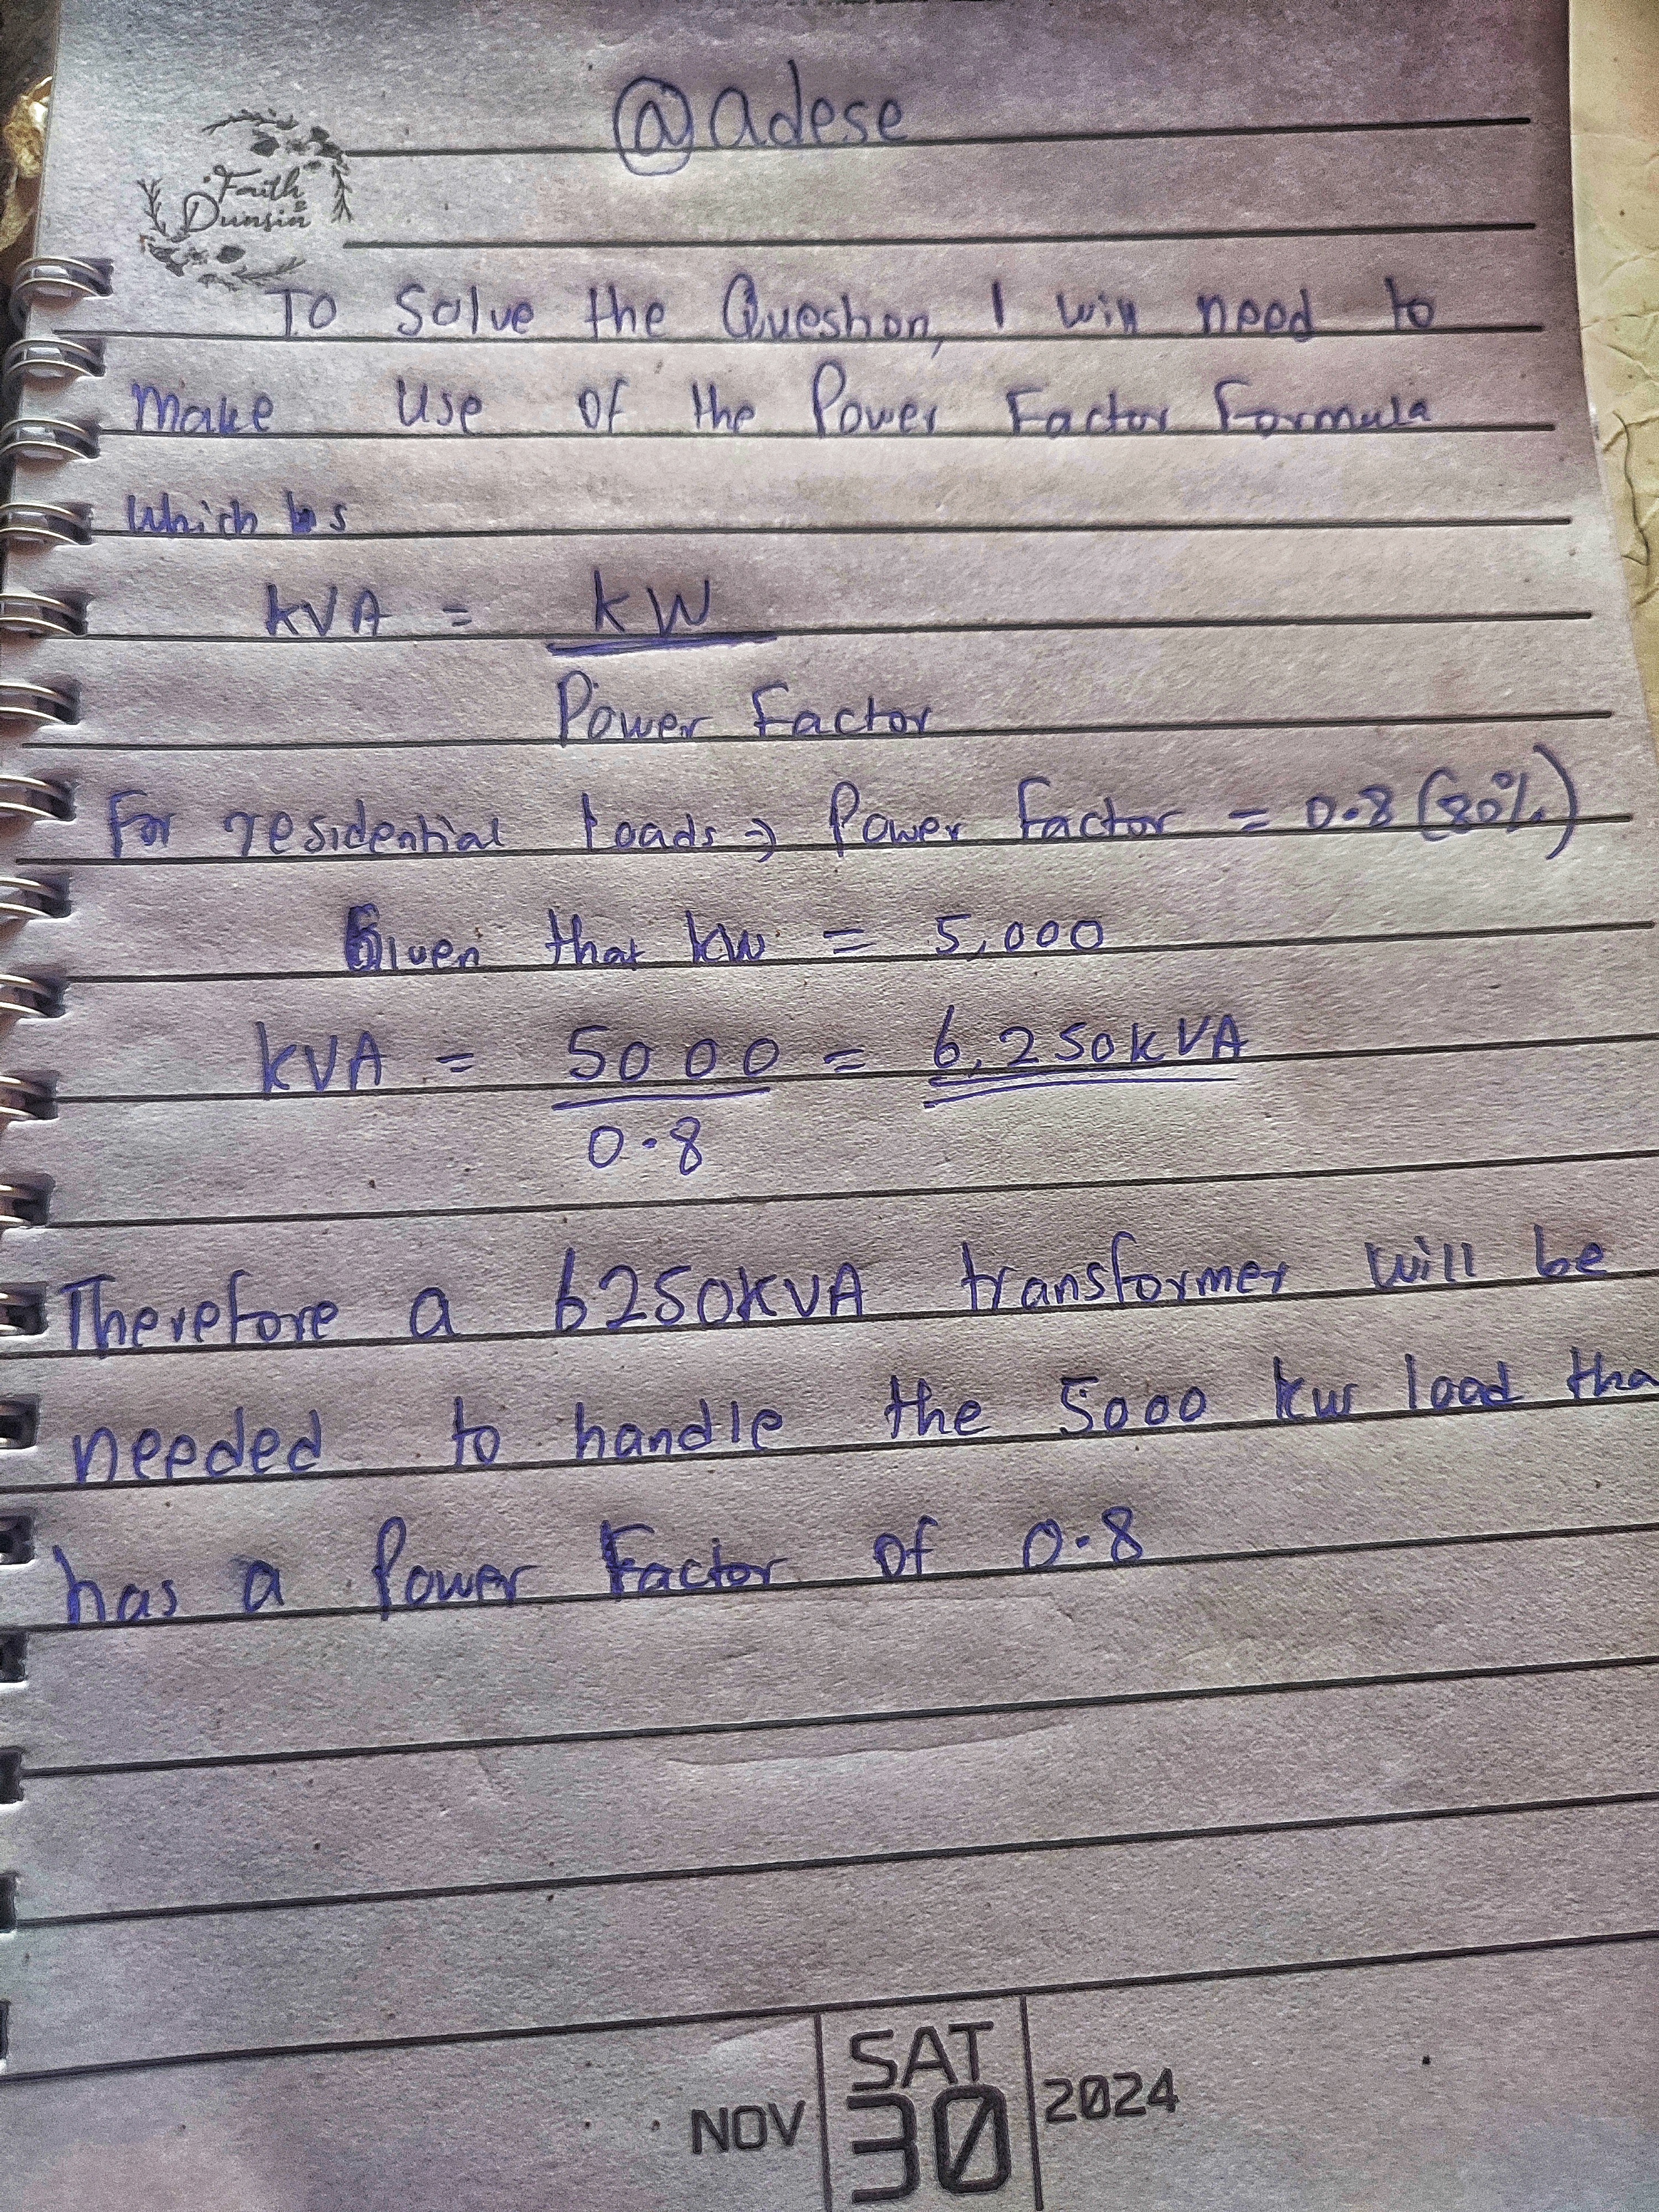 @adese
Faith
&
Dunsin
To Solve the Question, I will need to
make use of the Power Factor Formula
Which is
kVA = kW
Power Factor
For residential loads => Power Factor = 0.8 (80%)
Given that kw = 5,000
kVA = 5000 = 6,250kVA
0.8
Therefore a 6250kVA transformer will be
needed to handle the 5000 kw load tha
has a Power Factor of 0.8
NOV SAT 30 2024